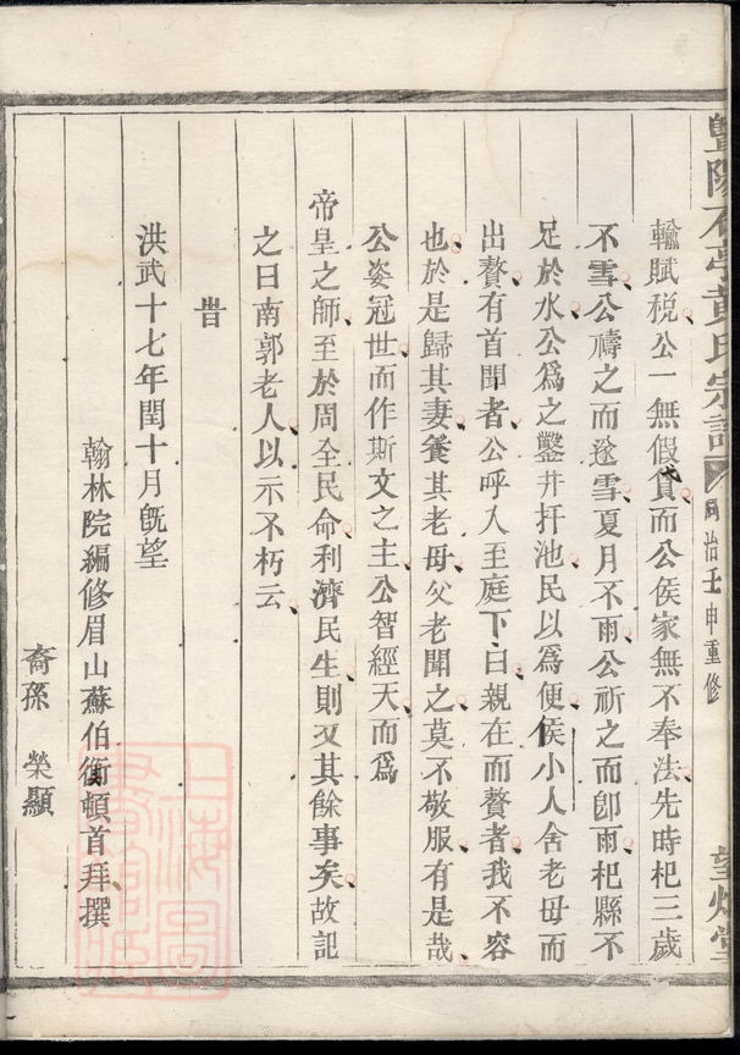 暨陽石亭黃氏宗譜 同治壬申重修 望烟堂
輸賦税公一無假貸而公侯家無不奉法先時杞三歲
不雪公禱之而遂雪夏月不雨公祈之而卽雨杞縣不
足於水公爲之鑿井扞池民以爲便侯小人舍老母而
出贅有首聞者公呼入至庭下曰親在而贅者我不容
也於是歸其妻養其老母父老聞之莫不敬服有是哉
公姿冠世而作斯文之主公智經天而爲
帝皇之師至於周全民命利濟民生則又其餘事矣故記
之曰南郭老人以示不朽云
旹
洪武十七年閏十月旣望
翰林院編修眉山蘇伯衡頓首拜撰
裔孫 榮顯
上海圖書館藏